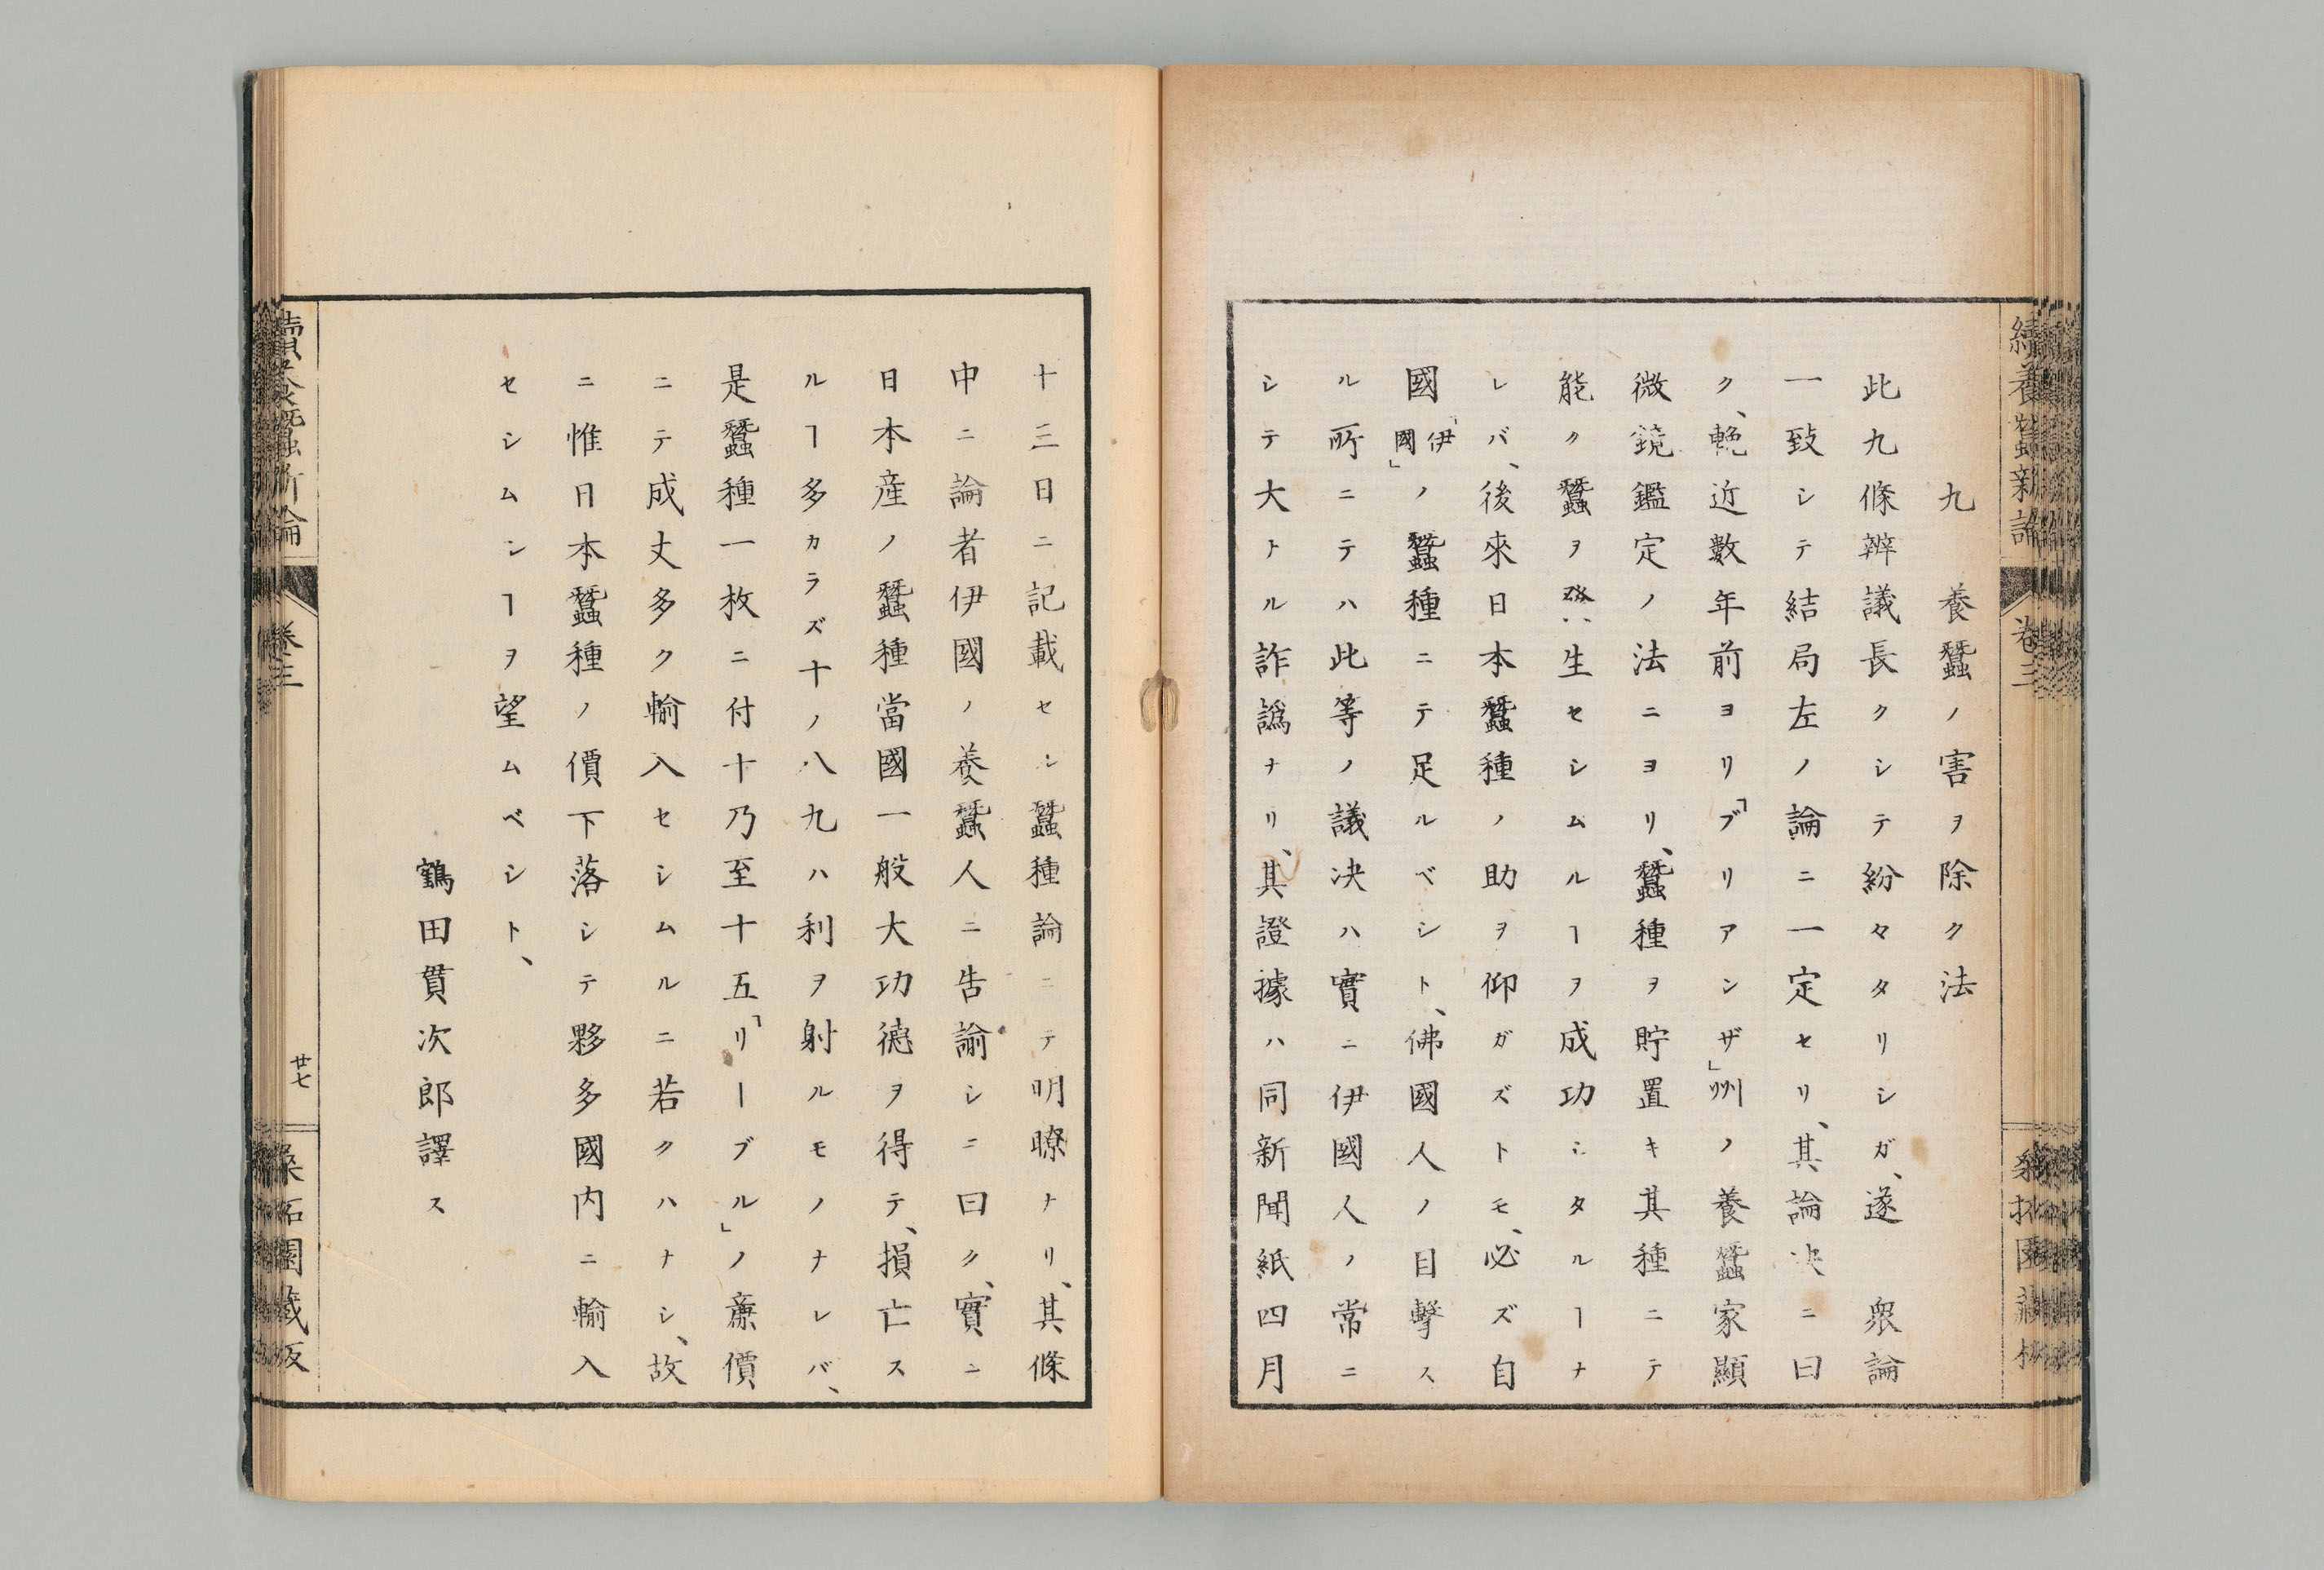 續養蠶新論
卷三
九　養蠶ノ害ヲ除ク法
此九條辨議長クシテ紛々タリシガ、遂　衆論
一致シテ結局左ノ論ニ一定セリ、其論決ニ曰
ク、輓近數年前ヨリ「ブリアンザ」州ノ養蠶家顯
微鏡鑑定ノ法ニヨリ、蠶種ヲ貯置キ其種ニテ
能ク蠶ヲ發生セシムルヿヲ成功シタルヿナ
レバ、後來日本蠶種ノ助ヲ仰ガズトモ、必ズ自
國「伊國」ノ蠶種ニテ足ルベシト、佛國人ノ目擊ス
ル所ニテハ此等ノ議決ハ實ニ伊國人ノ常ニ
シテ大トル詐譌ナリ、其證據ハ同新聞紙四月
十三日ニ記載セシ蠶種論ニテ明瞭ナリ、其條
中ニ論者伊國ノ養蠶人ニ告諭シニ曰ク、實ニ
日本産ノ蠶種當國一般大功德ヲ得テ、損亡ス
ルヿ多カラズ十ノ八九ハ利ヲ射ルモノナレバ、
是蠶種一枚ニ付十乃至十五「リーブル」ノ廉價
ニテ成丈多ク輸入セシムルニ若クハナシ、故
ニ惟日本蠶種ノ價下落シテ夥多國内ニ輸入
セシムンヿヲ望ムベシト、
鶴田貫次郎譯ス
續養蠶新論
卷三
廿七
桑柘園藏版